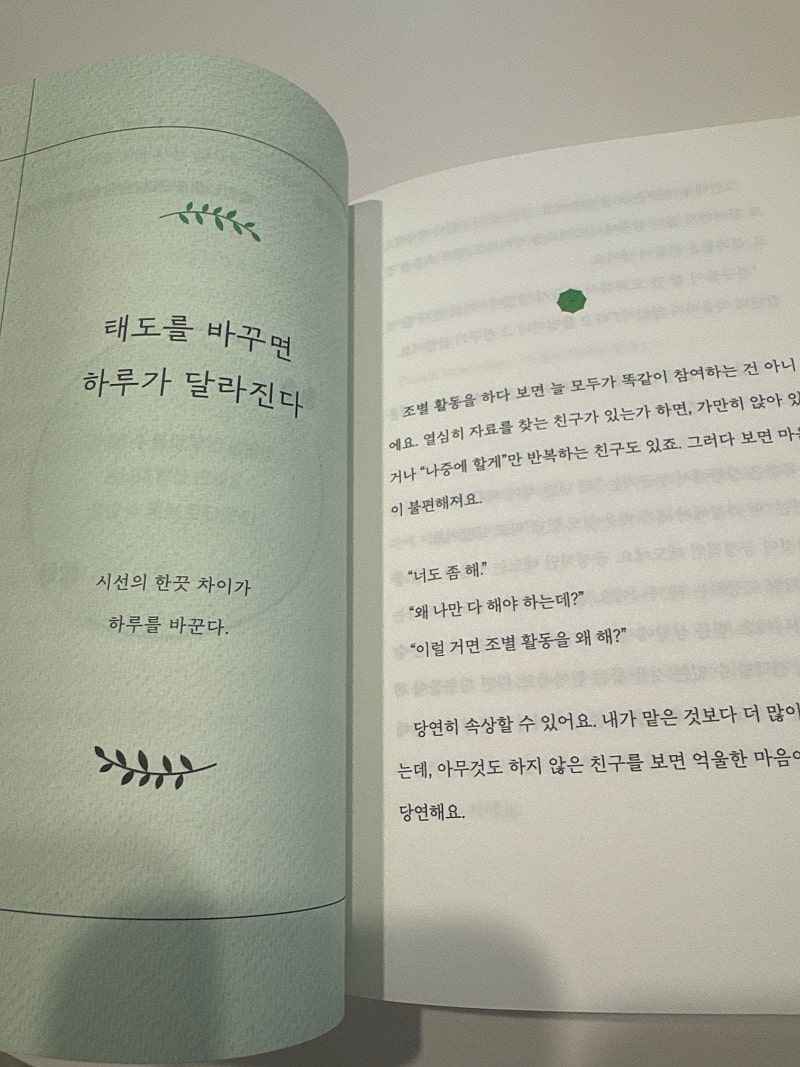 태도를 바꾸면
하루가 달라진다
시선의 한끗 차이가
하루를 바꾼다.
조별 활동을 하다 보면 늘 모두가 똑같이 참여하는 건 아니
에요. 열심히 자료를 찾는 친구가 있는가 하면, 가만히 앉아 있
거나 “나중에 할게”만 반복하는 친구도 있죠. 그러다 보면 마음
이 불편해져요.
“너도 좀 해.”
“왜 나만 다 해야 하는데?”
“이럴 거면 조별 활동을 왜 해?”
당연히 속상할 수 있어요. 내가 맡은 것보다 더 많이
는데, 아무것도 하지 않은 친구를 보면 억울한 마음이
당연해요.